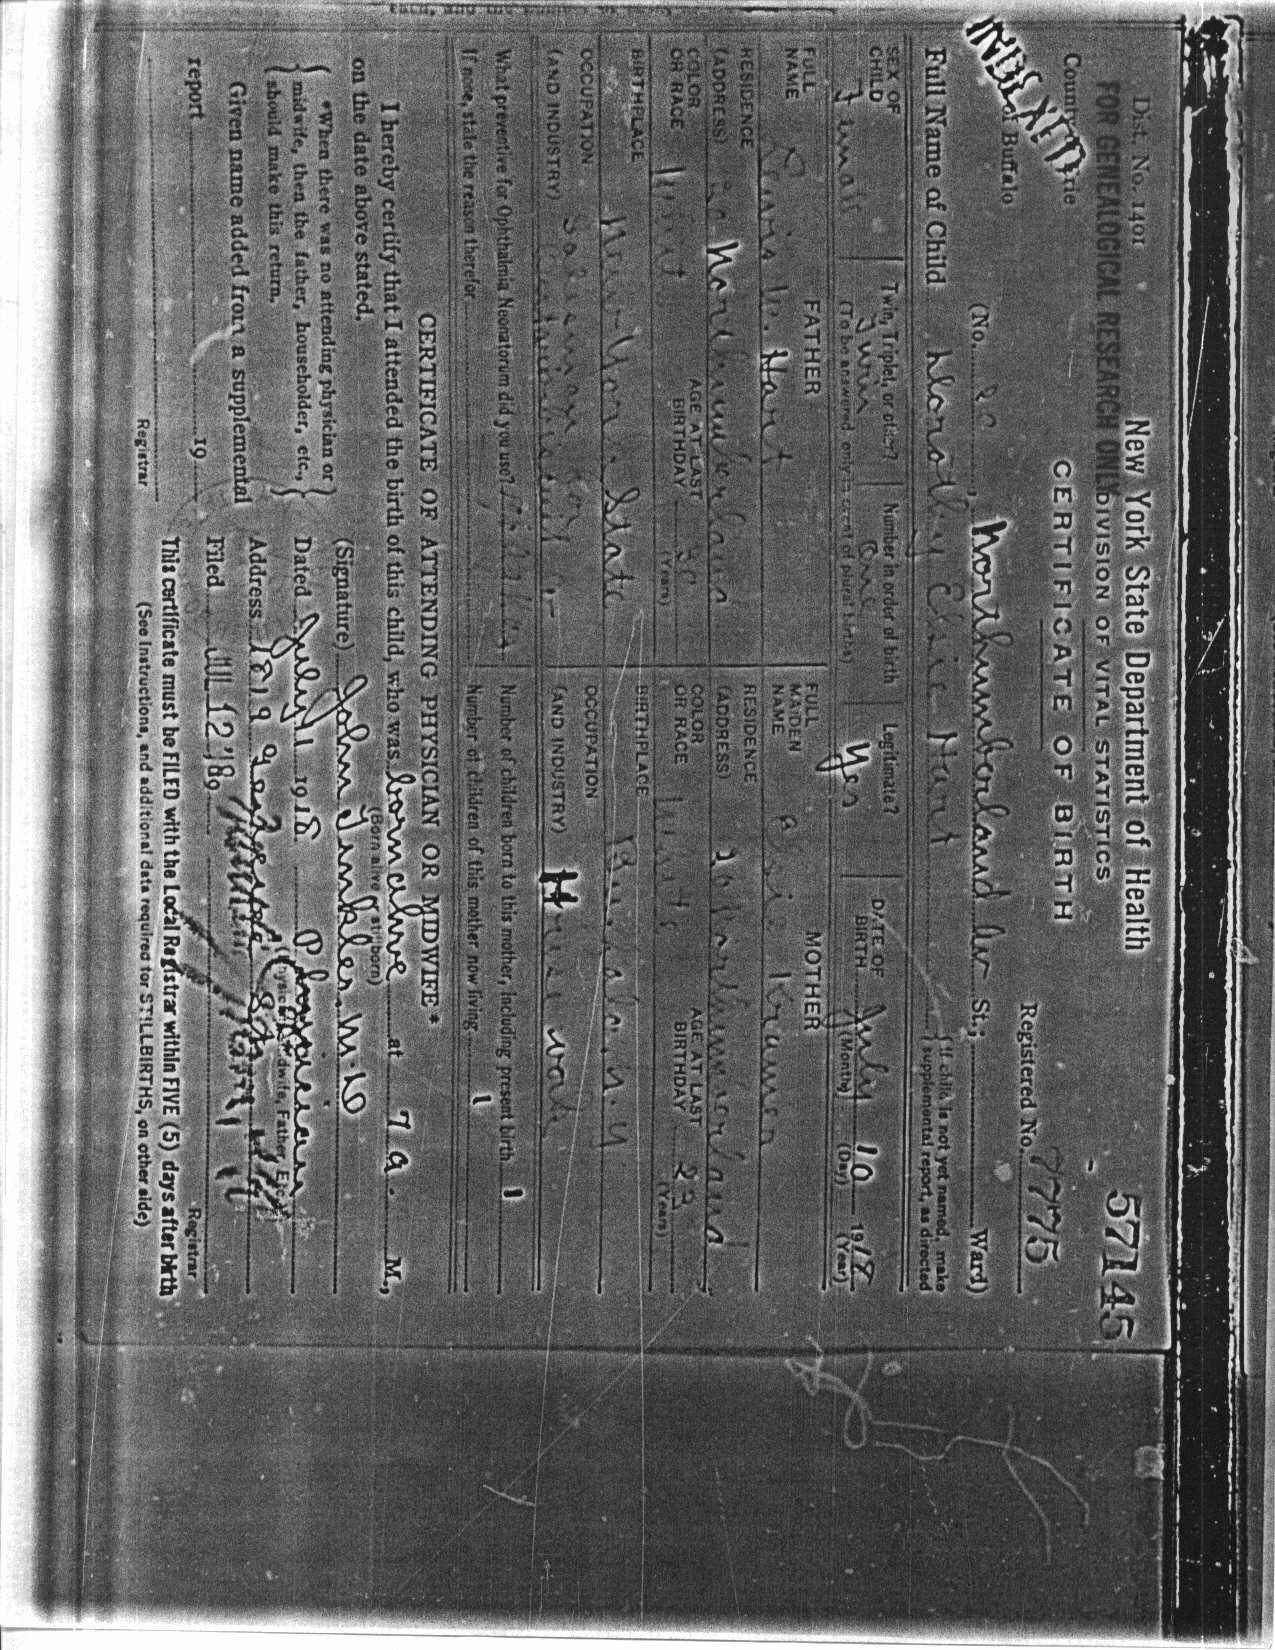 57145
New York State Department of Health
DIVISION OF VITAL STATISTICS
FOR GENEALOGICAL RESEARCH ONLY
CERTIFICATE OF BIRTH
Dist. No. 1401
County
of Buffalo
INDEXED
Registered No. 7775
(No. 20, Northumberland Av St.; Ward)
Full Name of Child Dorothy Elsie Hart
{ If child is not yet named, make
supplemental report, as directed
SEX OF
CHILD Female
Twin, Triplet, or other? Twin
Number in order of birth One
(To be answered only in event of plural births)
Legitimate? Yes
DATE OF
BIRTH July 10 1918
(Month) (Day) (Year)
FATHER
FULL
NAME Hart
RESIDENCE
(ADDRESS) 20 Northumberland
COLOR
OR RACE White
AGE AT LAST
BIRTHDAY 30
(Years)
BIRTHPLACE New York State
OCCUPATION
(AND INDUSTRY) Salesman for
MOTHER
FULL
MAIDEN
NAME
RESIDENCE
(ADDRESS) 20 Northumberland
COLOR
OR RACE White
AGE AT LAST
BIRTHDAY
(Years)
BIRTHPLACE Buffalo, N.Y
OCCUPATION
(AND INDUSTRY) House work
What preventive for Ophthalmia Neonatorum did you use?
Number of children born to this mother, including present birth 1
If none, state the reason therefor
Number of children of this mother now living 1
CERTIFICATE OF ATTENDING PHYSICIAN OR MIDWIFE*
I hereby certify that I attended the birth of this child, who was born alive at 7 a. M.,
(Born alive stillborn)
on the date above stated.
*When there was no attending physician or
midwife, then the father, householder, etc.,
should make this return.
(Signature) John M.D
Physician
(Physician, Midwife, Father, Etc.)
Dated July 11 1918.
Given name added from a supplemental
report 19
Registrar
Address 1819
Filed JUL 12 '18 9
Registrar
This certificate must be FILED with the Local Registrar within FIVE (5) days after birth
(See Instructions, and additional data required for STILLBIRTHS, on other side)